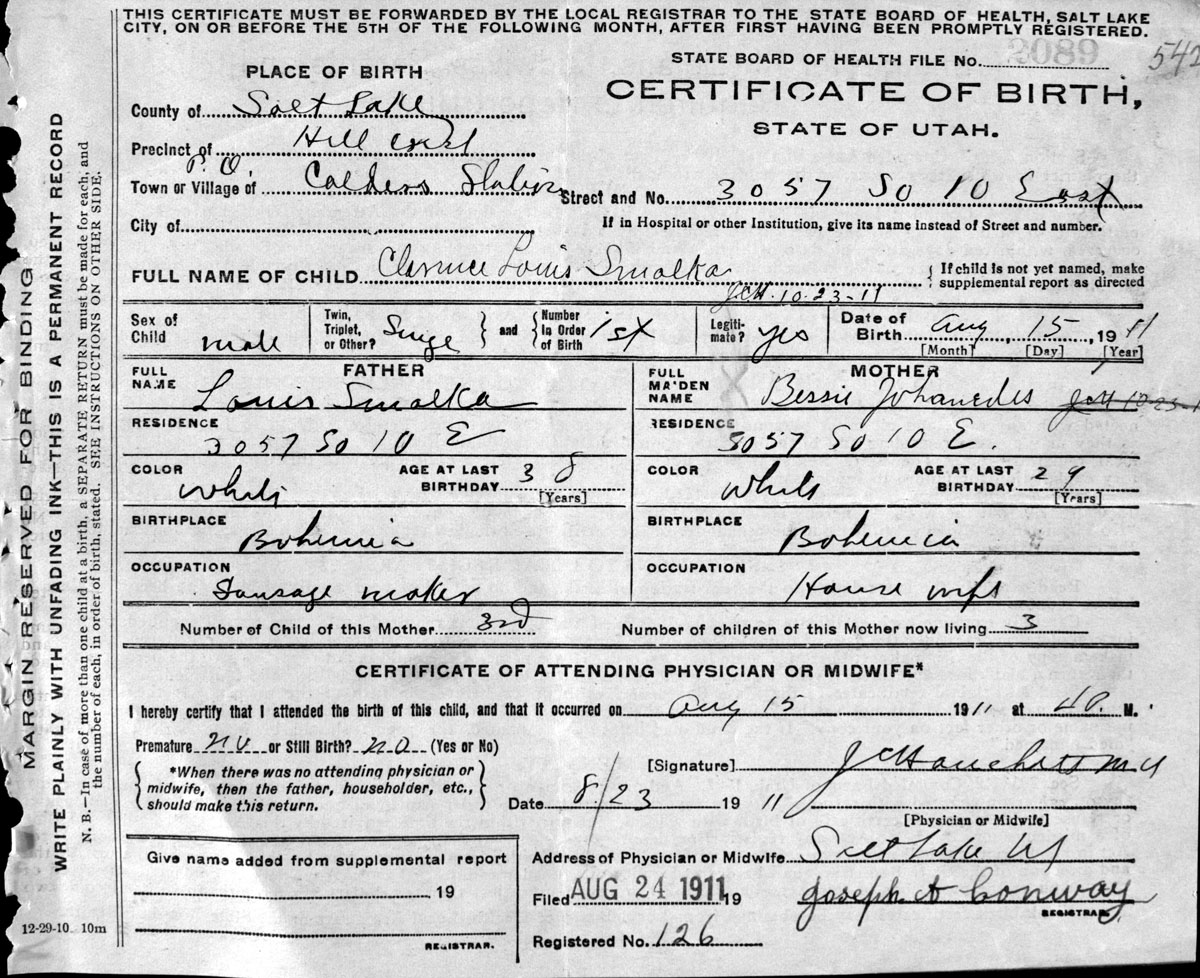 THIS CERTIFICATE MUST BE FORWARDED BY THE LOCAL REGISTRAR TO THE STATE BOARD OF HEALTH, SALT LAKE
CITY, ON OR BEFORE THE 5TH OF THE FOLLOWING MONTH, AFTER FIRST HAVING BEEN PROMPTLY REGISTERED.
STATE BOARD OF HEALTH FILE No. 2089 542
PLACE OF BIRTH
CERTIFICATE OF BIRTH,
STATE OF UTAH.
County of Salt Lake
Precinct of Hill Crest
P. O.
Town or Village of Calders Station
Street and No. 3057 So 10 East
City of
If in Hospital or other Institution, give its name instead of Street and number.
FULL NAME OF CHILD Clarence Louis Smalka
{ If child is not yet named, make
supplemental report as directed
JCH 10-23-11
Sex of Child male
Twin, Triplet, or Other? Singe } and { Number in Order of Birth 1st
Legitimate? yes
Date of Birth Aug 15, 1911
[Month] [Day] [Year]
FATHER
FULL NAME Louis Smalka
RESIDENCE 3057 So 10 E
COLOR White AGE AT LAST BIRTHDAY 38 [Years]
BIRTHPLACE Bohemia
OCCUPATION Sausage maker
MOTHER
FULL MAIDEN NAME Bessie JCH 10-23-1
RESIDENCE 3057 So 10 E.
COLOR White AGE AT LAST BIRTHDAY 29 [Years]
BIRTHPLACE Bohemia
OCCUPATION House wife
Number of Child of this Mother 3rd Number of children of this Mother now living 3
CERTIFICATE OF ATTENDING PHYSICIAN OR MIDWIFE*
I hereby certify that I attended the birth of this child, and that it occurred on Aug 15 1911 at 4P. M.
Premature no or Still Birth? no (Yes or No)
{ *When there was no attending physician or
midwife, then the father, householder, etc.,
should make this return. }
[Signature]
Date 8/23 1911
[Physician or Midwife]
Give name added from supplemental report
19
REGISTRAR.
Address of Physician or Midwife Salt Lake
Filed AUG 24 1911 19 Joseph A Conway
REGISTRAR.
Registered No. 126
12-29-10 10m
MARGIN RESERVED FOR BINDING
WRITE PLAINLY WITH UNFADING INK—THIS IS A PERMANENT RECORD
N. B.—In case of more than one child at a birth, a SEPARATE RETURN must be made for each, and
the number of each, in order of birth, stated. SEE INSTRUCTIONS ON OTHER SIDE.